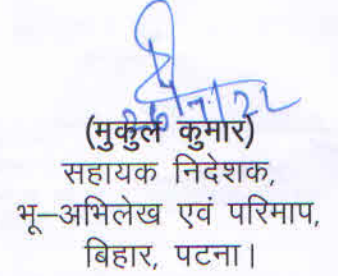 26/7/22
(मुकुल कुमार)
सहायक निदेशक,
भू–अभिलेख एवं परिमाप,
बिहार, पटना।